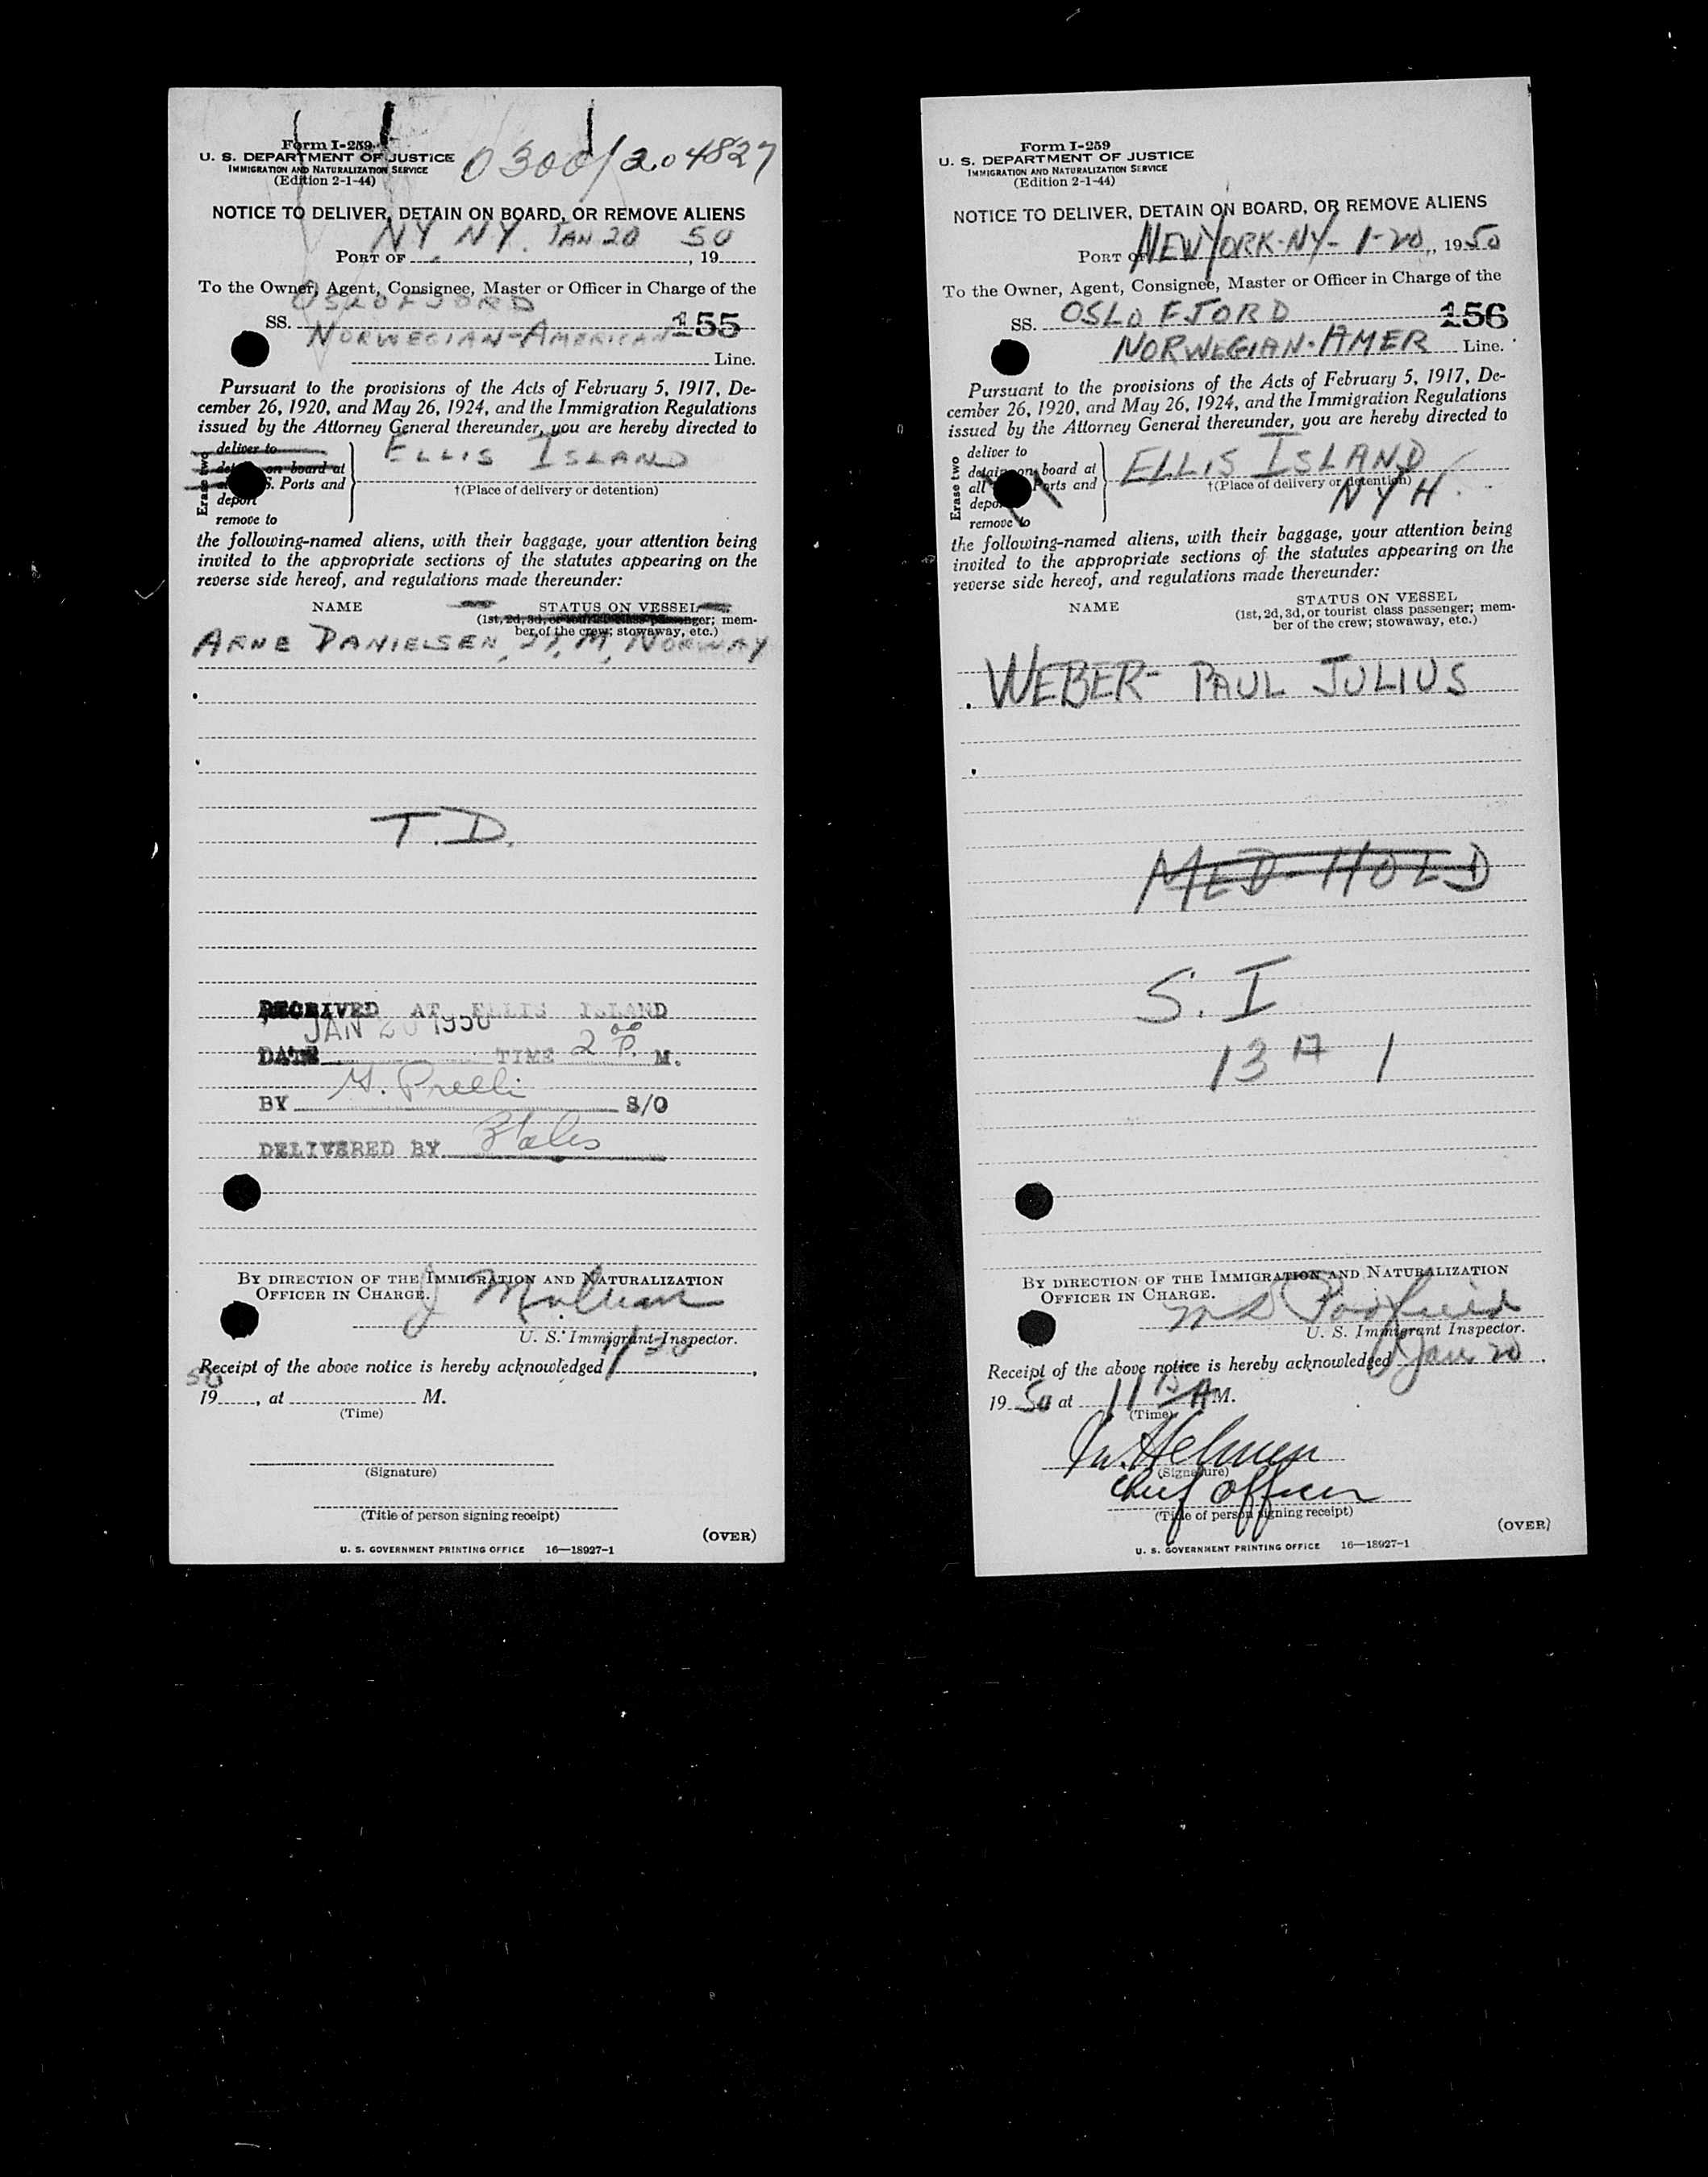 Form I-259
U. S. DEPARTMENT OF JUSTICE
IMMIGRATION AND NATURALIZATION SERVICE
(Edition 2-1-44)
0300/204827
NOTICE TO DELIVER, DETAIN ON BOARD, OR REMOVE ALIENS
NY NY. JAN 20 50
PORT OF , 19
To the Owner, Agent, Consignee, Master or Officer in Charge of the
OSLOFJORD
SS. 155
NORWEGIAN-AMERICAN
Line.
Pursuant to the provisions of the Acts of February 5, 1917, De-
cember 26, 1920, and May 26, 1924, and the Immigration Regulations
issued by the Attorney General thereunder, you are hereby directed to
Erase two
deliver to
on board at
S. Ports and
deport
remove to
ELLIS ISLAND
†(Place of delivery or detention)
the following-named aliens, with their baggage, your attention being
invited to the appropriate sections of the statutes appearing on the
reverse side hereof, and regulations made thereunder:
NAME STATUS ON VESSEL
(1st, 2d, 3d, or tourist class passenger; mem-
ber of the crew; stowaway, etc.)
ARNE DANIELSEN, M, NORWAY
T.D.
RECEIVED AT ELLIS ISLAND
JAN 20 1950
DATE TIME 2 00 P. M.
BY S/O
DELIVERED BY
BY DIRECTION OF THE IMMIGRATION AND NATURALIZATION
OFFICER IN CHARGE.
U. S. Immigrant Inspector.
Receipt of the above notice is hereby acknowledged 1/20,
50
19, at M.
(Time)
(Signature)
(Title of person signing receipt)
(OVER)
U. S. GOVERNMENT PRINTING OFFICE 16—18927-1
Form I-259
U. S. DEPARTMENT OF JUSTICE
IMMIGRATION AND NATURALIZATION SERVICE
(Edition 2-1-44)
NOTICE TO DELIVER, DETAIN ON BOARD, OR REMOVE ALIENS
PORT OF NEW YORK-NY- 1-20, 1950
To the Owner, Agent, Consignee, Master or Officer in Charge of the
SS. OSLO FJORD 156
NORWEGIAN-AMER Line.
Pursuant to the provisions of the Acts of February 5, 1917, De-
cember 26, 1920, and May 26, 1924, and the Immigration Regulations
issued by the Attorney General thereunder, you are hereby directed to
Erase two
deliver to
detain on board at
all Ports and
deport
remove to
ELLIS ISLAND
†(Place of delivery or detention)
NYH.
the following-named aliens, with their baggage, your attention being
invited to the appropriate sections of the statutes appearing on the
reverse side hereof, and regulations made thereunder:
NAME STATUS ON VESSEL
(1st, 2d, 3d, or tourist class passenger; mem-
ber of the crew; stowaway, etc.)
WEBER- PAUL JULIUS
MED-HOLD
S. I
13 A 1
BY DIRECTION OF THE IMMIGRATION AND NATURALIZATION
OFFICER IN CHARGE.
U. S. Immigrant Inspector.
Receipt of the above notice is hereby acknowledged Jan 20,
19 50 at 11 15 A M.
(Time)
(Signature)
Chief Officer
(Title of person signing receipt)
(OVER)
U. S. GOVERNMENT PRINTING OFFICE 16—18927-1